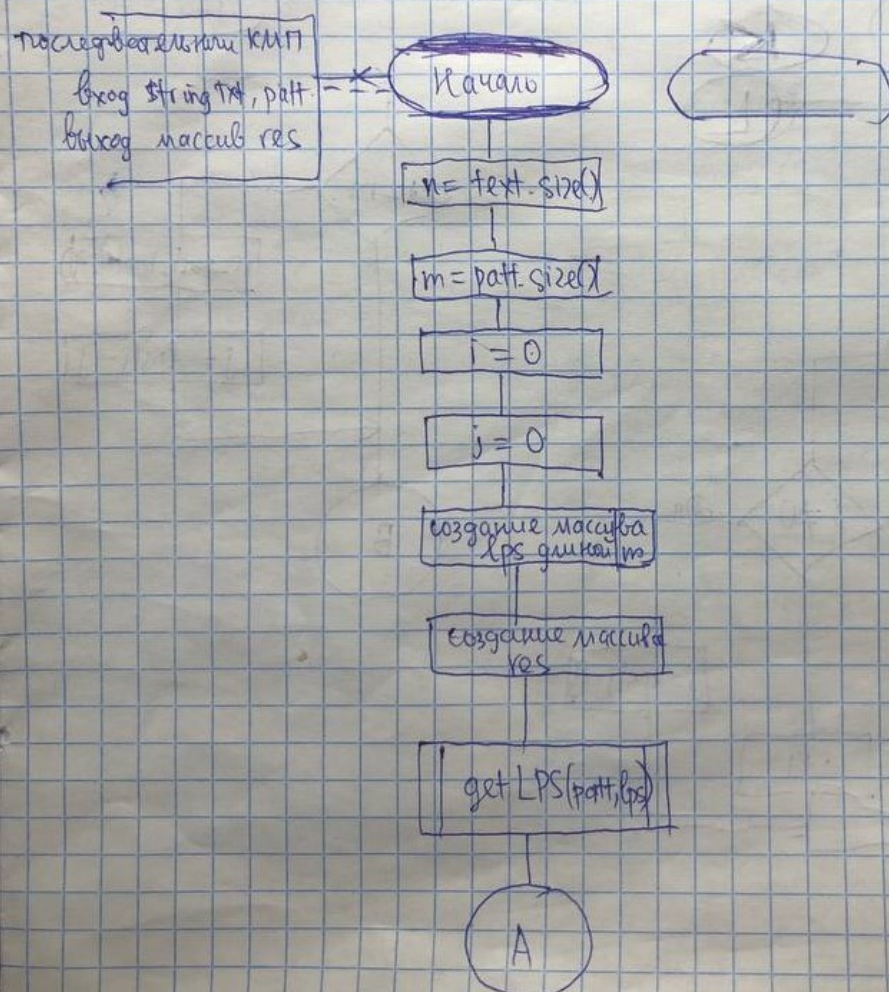 последвательный КМП
вход string txt, patt
выход массив res
Начало
n = text.size()
m = patt.size()
i = 0
j = 0
создание массива
lps длиной m
создание массива
res
getLPS(patt, lps)
A